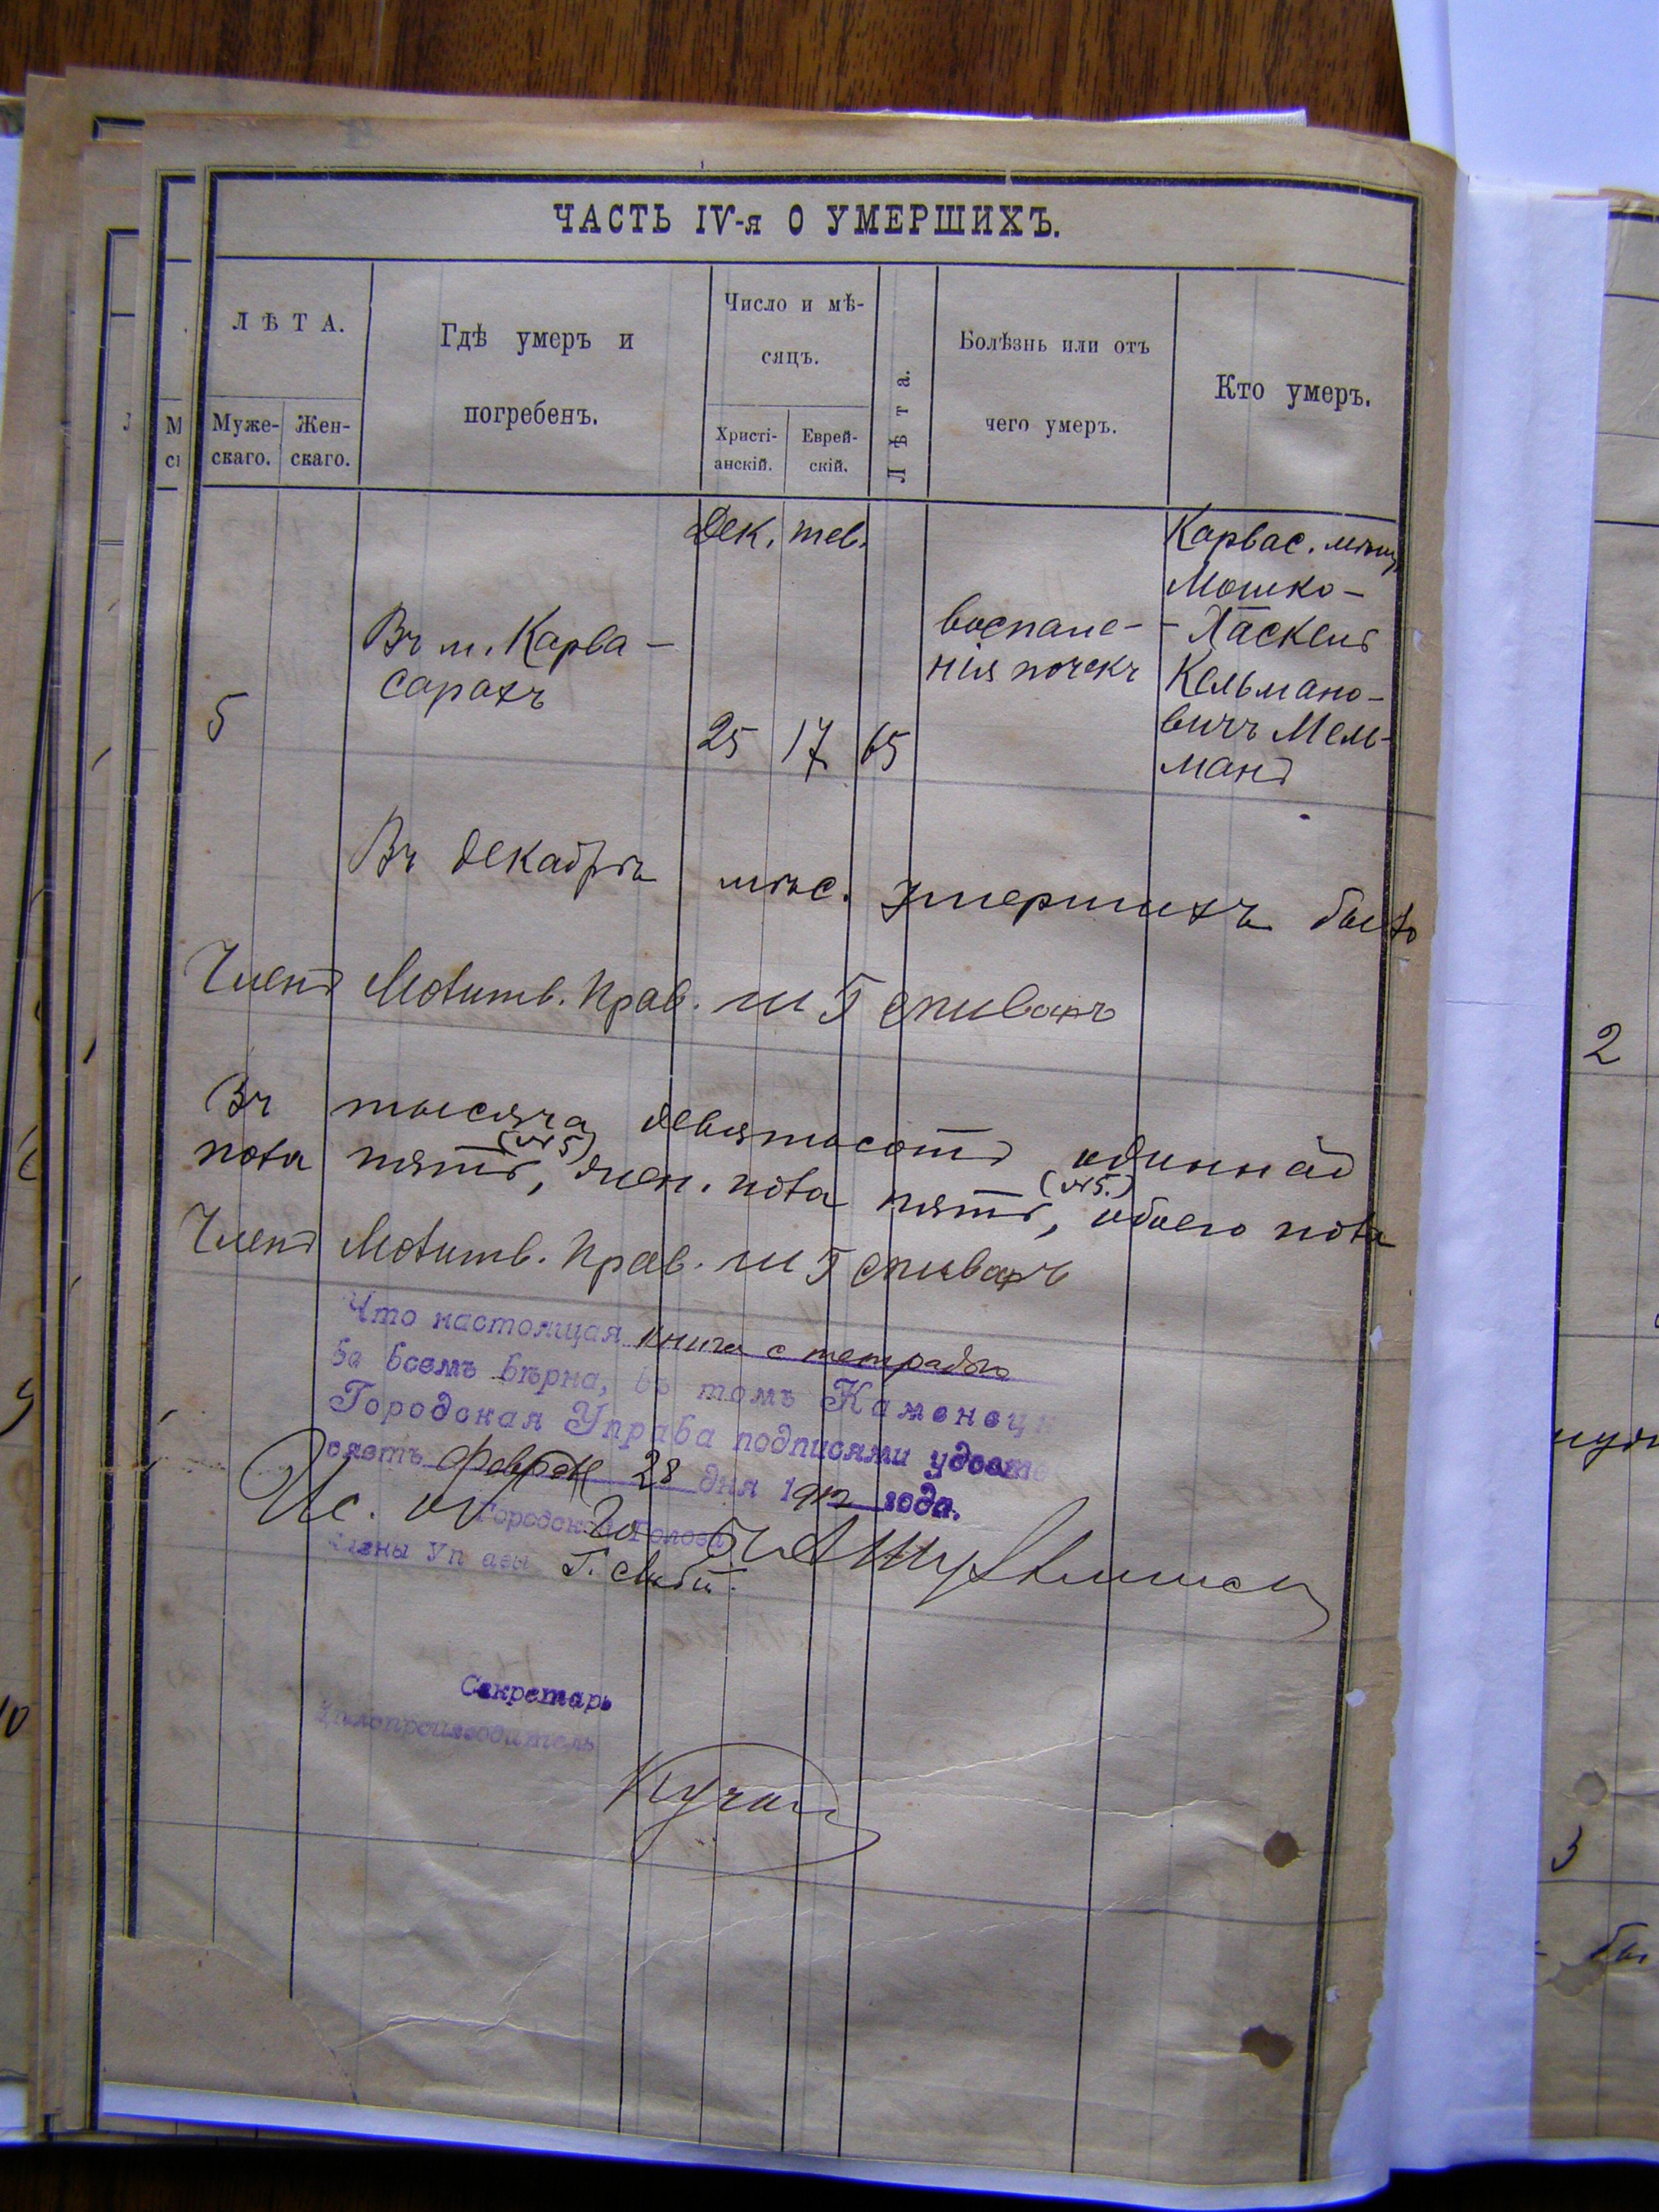 ЧАСТЬ IV-я О УМЕРШИХЪ.
ЛѢТА.
Муже-
скаго.
Жен-
скаго.
Гдѣ умеръ и
погребенъ.
Число и мѣ-
сяцъ.
Христі-
анскій.
Еврей-
скій.
Лѣта.
Болѣзнь или отъ
чего умеръ.
Кто умеръ.
Дек. тев.
5
Въ м. Карва-
сарахъ
25 17 65
воспале-
нія почекъ
Карвас. мѣщ.
Мошко-
-Хаскель
Кельмано-
вичъ Мель-
манъ
Въ декабрѣ мѣс. умершихъ было
Членъ Молитв. Прав. Ш Г Спиваръ
Въ тысяча девятьсотъ одиннад
пола пять, (№ 5) жен. пола пять, (№ 5.) обоего пола
Членъ Молитв. Прав. Ш Г Спиваръ
Что настоящая книга с тетрадью
во всемъ вѣрна, въ томъ Каменец
Городская Управа подписями удосто
ряетъ Февраля 28 дня 1912 года.
Ис. об Городской Голова
Члены Управы
Секретарь
Дѣлопроизводитель
2
3
10